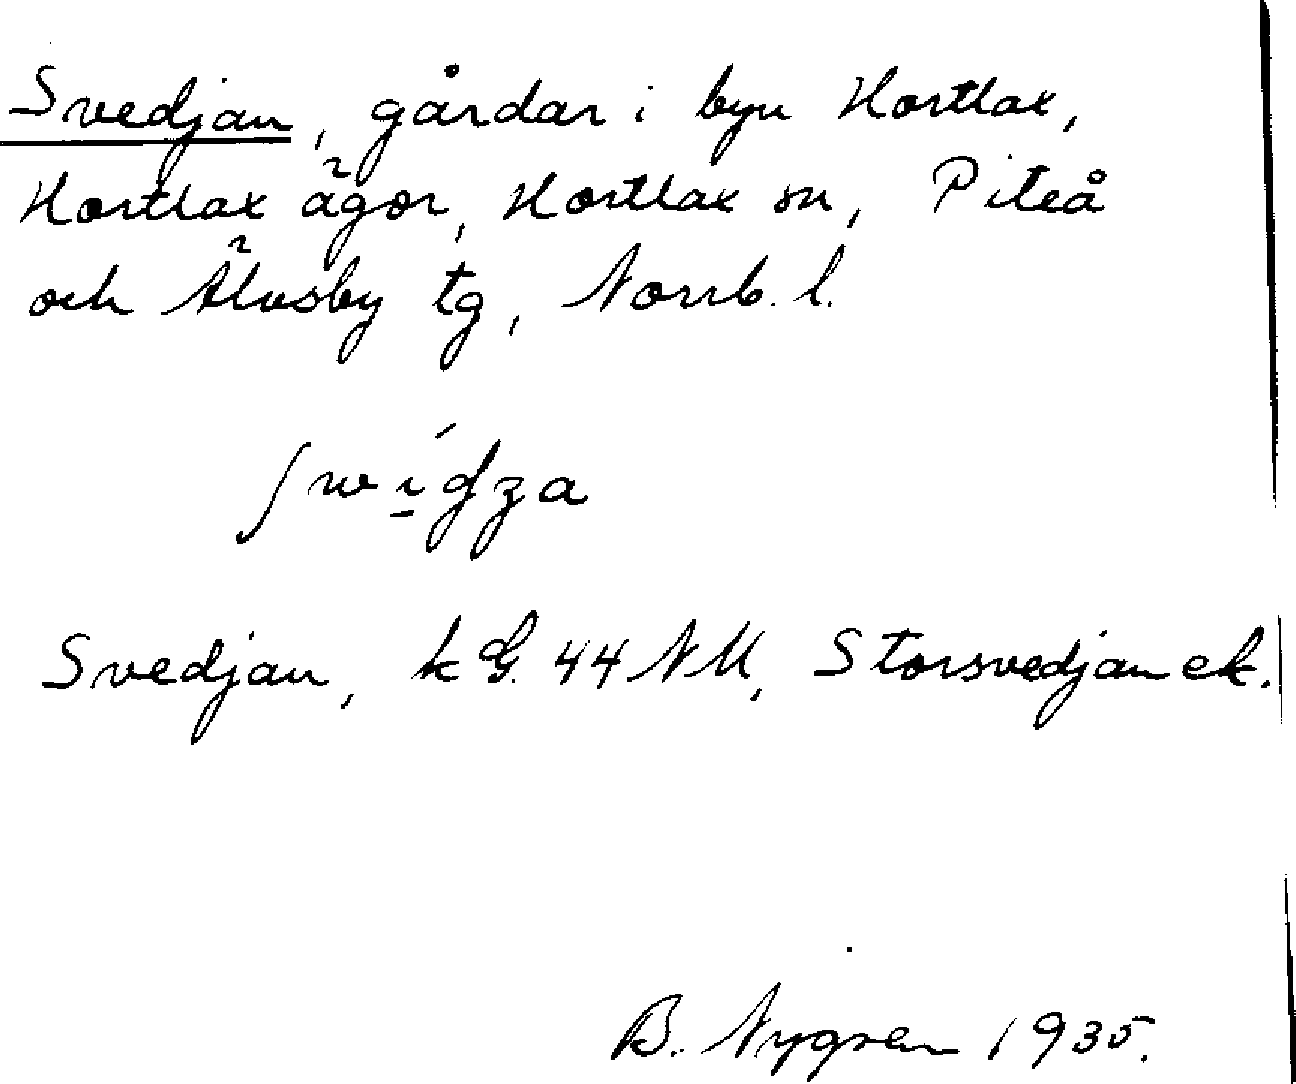 Svedjan, gårdar i byn Hortlax,
Hortlax ägor, Hortlax sn, Piteå
och Älvsby tg, Norrb. l.
Svedjan, k G. 44 NM, Storsvedjan ek.
B. Nygren 1935.